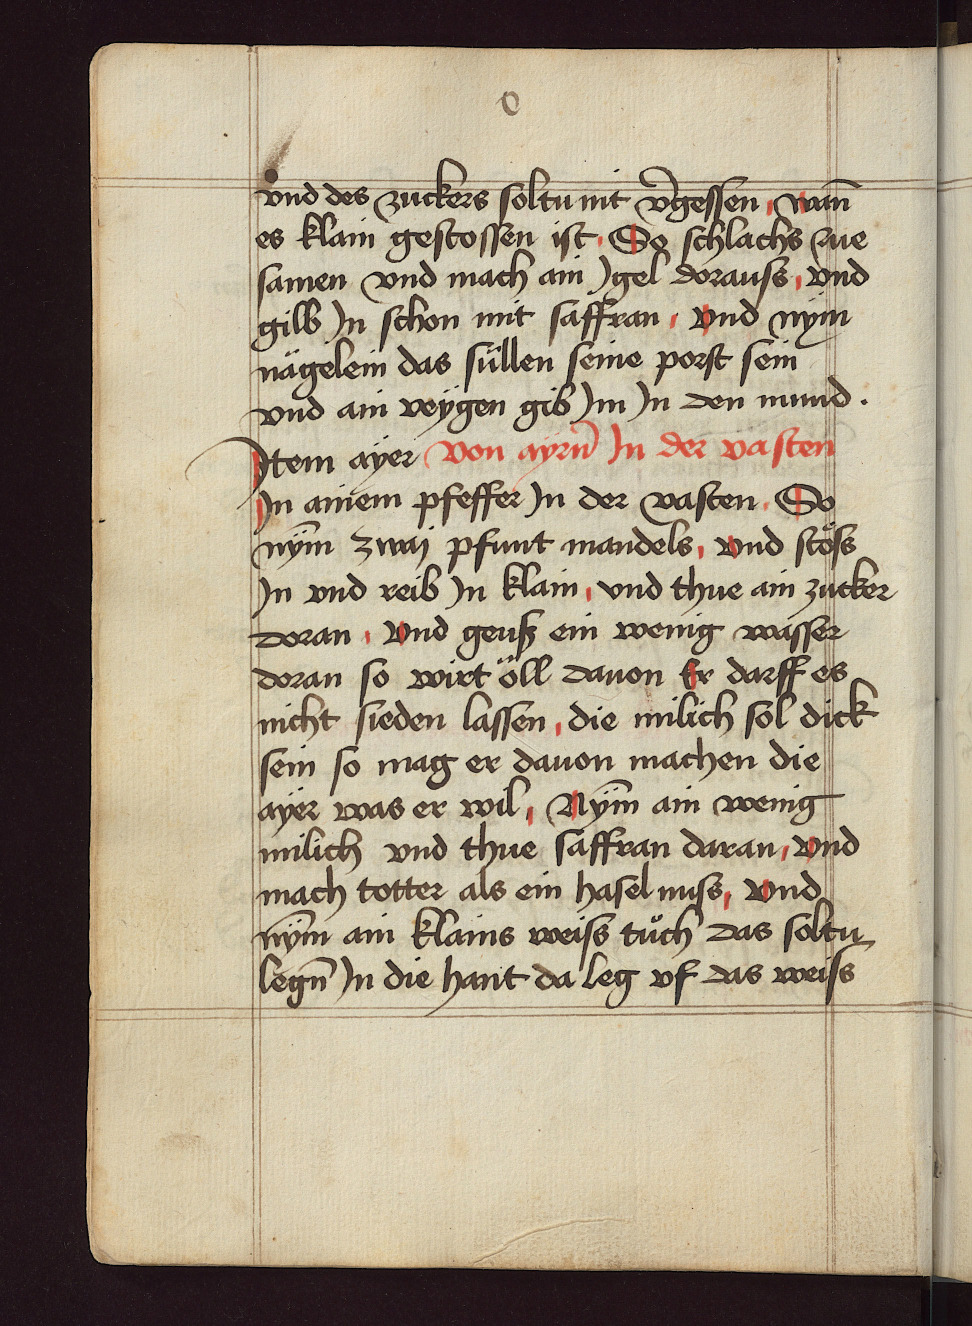 o
vnd des zuckers soltu nit v͛gessen, wan̄
es klain gestossen ist. So schlachs zue
samen vnd mach ain Jgel dorauss, vnd
gilb Jn schon mit saffran, vnd nÿm
nägelein das süllen seine porst sein
vnd ain veÿgen gib Jm Jn den mund.
Jtem aÿer Von ayrn̄ Jn der vasten
Jn ainem pfeffer Jn der vasten. So
nÿm zwaj pfunt mandels, vnd stöss
Jn vnd reib Jn klain, vnd thue ain zucker
doran, vnd geuß ein wenig wasser
doran so wirt öll dauon Er darff es
nicht sieden lassen, die milich sol dick
sein so mag er dauon machen die
aÿer was er wil, Nÿm ain wenig
milich vnd thue saffran daran, vnd
mach totter als ein haselnuss, vnd
nÿm ain klains weiss tuͦch das soltu
legn̄ Jn die hant da leg vf das weiss